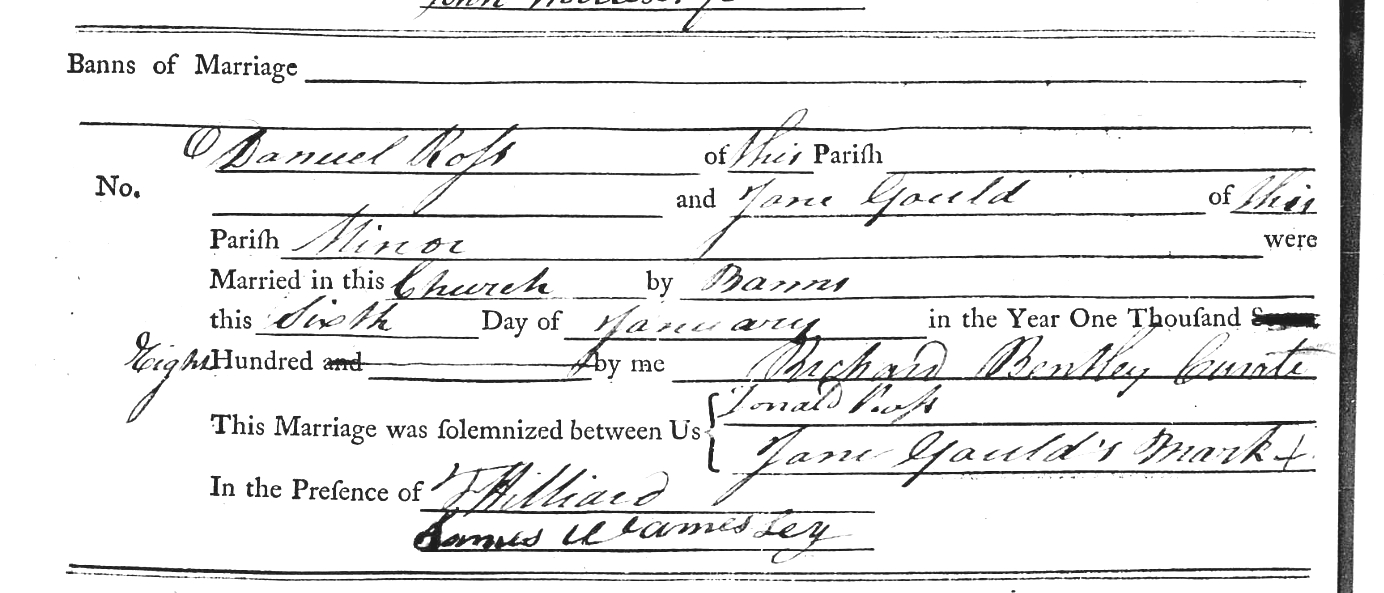 Banns of Marriage
Daniel Roſs of this Pariſh
No. and Jane Gould of this
Pariſh Minor were
Married in this Church by Banns
this Sixth Day of January in the Year One Thouſand
Eight Hundred and by me Richard Bentley Curate
Donald Roſs
This Marriage was ſolemnized between Us
Jane Gould's mark +
In the Preſence of Hilliard
James